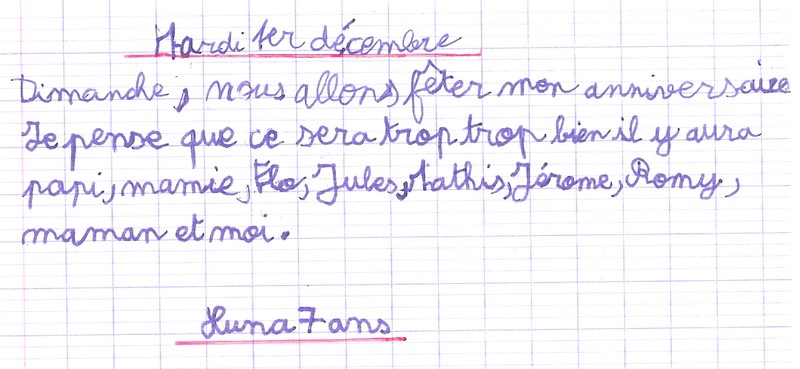 Mardi 1er décembre
Dimanche, nous allons fêter mon anniversaire
Je pense que ce sera trop trop bien il y aura
papi, mamie, Flo, Jules, Mathis, Jérome, Romy,
maman et moi.
Luna 7 ans